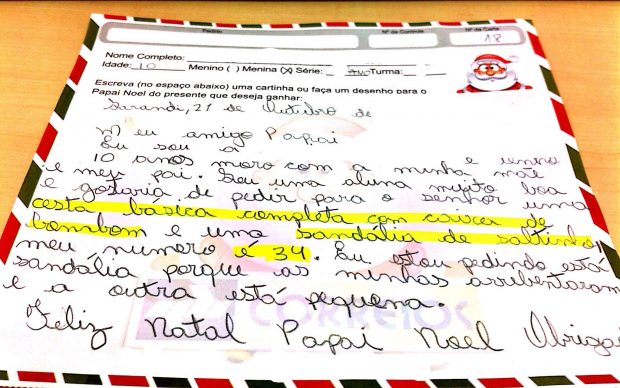 Pedido Nº de Controle Nº da Carta
18
Nome Completo:
Idade: 10 Menino ( ) Menina (X) Série: Turma:
Escreva (no espaço abaixo) uma cartinha ou faça um desenho para o
Papai Noel do presente que deseja ganhar:
Sarandi, 21 de Outubro de
Meu amigo Papai
Eu sou a e tenho
10 anos moro com a minha mãe
e meu pai. Sou uma aluna muito boa
e gostaria de pedir para o senhor uma
cesta básica completa com caixa de
bombom e uma sandália de saltinho
meu número é 34. Eu estou pedindo está
sandália porque as minhas arrebentaram
e a outra está pequena.
Feliz Natal Papai Noel
CORREIOS